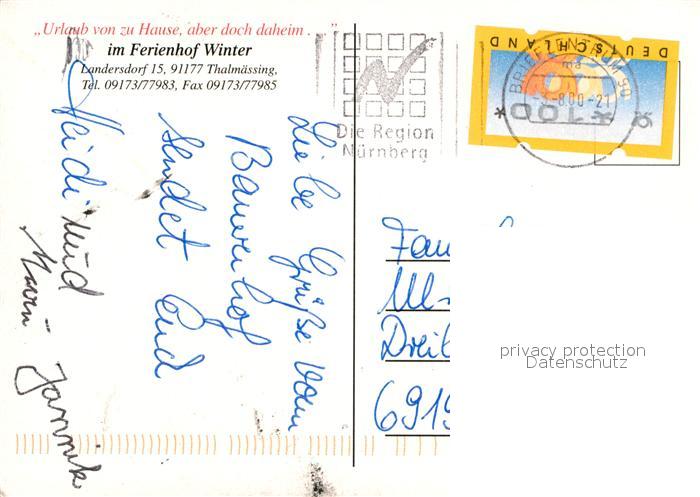 „Urlaub von zu Hause, aber doch daheim . . .”
im Ferienhof Winter
Landersdorf 15, 91177 Thalmässing,
Tel. 09173/77983, Fax 09173/77985
Die Region
Nürnberg
DEUTSCHLAND
BRIEFZENTRUM 90
.-8.00-21
*100*
Liebe Grüße vom
Bauernhof
sendet Euch
Heidi und
Jannik
Fam
Dreil
6919
privacy protection
Datenschutz